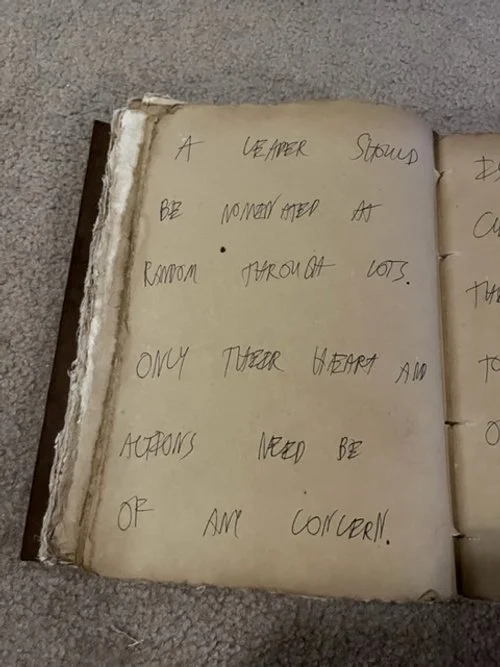 A LEADER SHOULD
BE NOMINATED AT
RANDOM THROUGH LOTS.
ONLY THEIR HEART AND
ACTIONS NEED BE
OF ANY CONCERN.